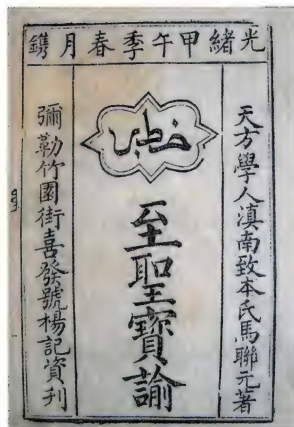 光緒甲午季春月鐫
天方學人滇南致本氏馬聯元著
خطب
至聖寶諭
彌勒竹園街喜發號楊記資刊